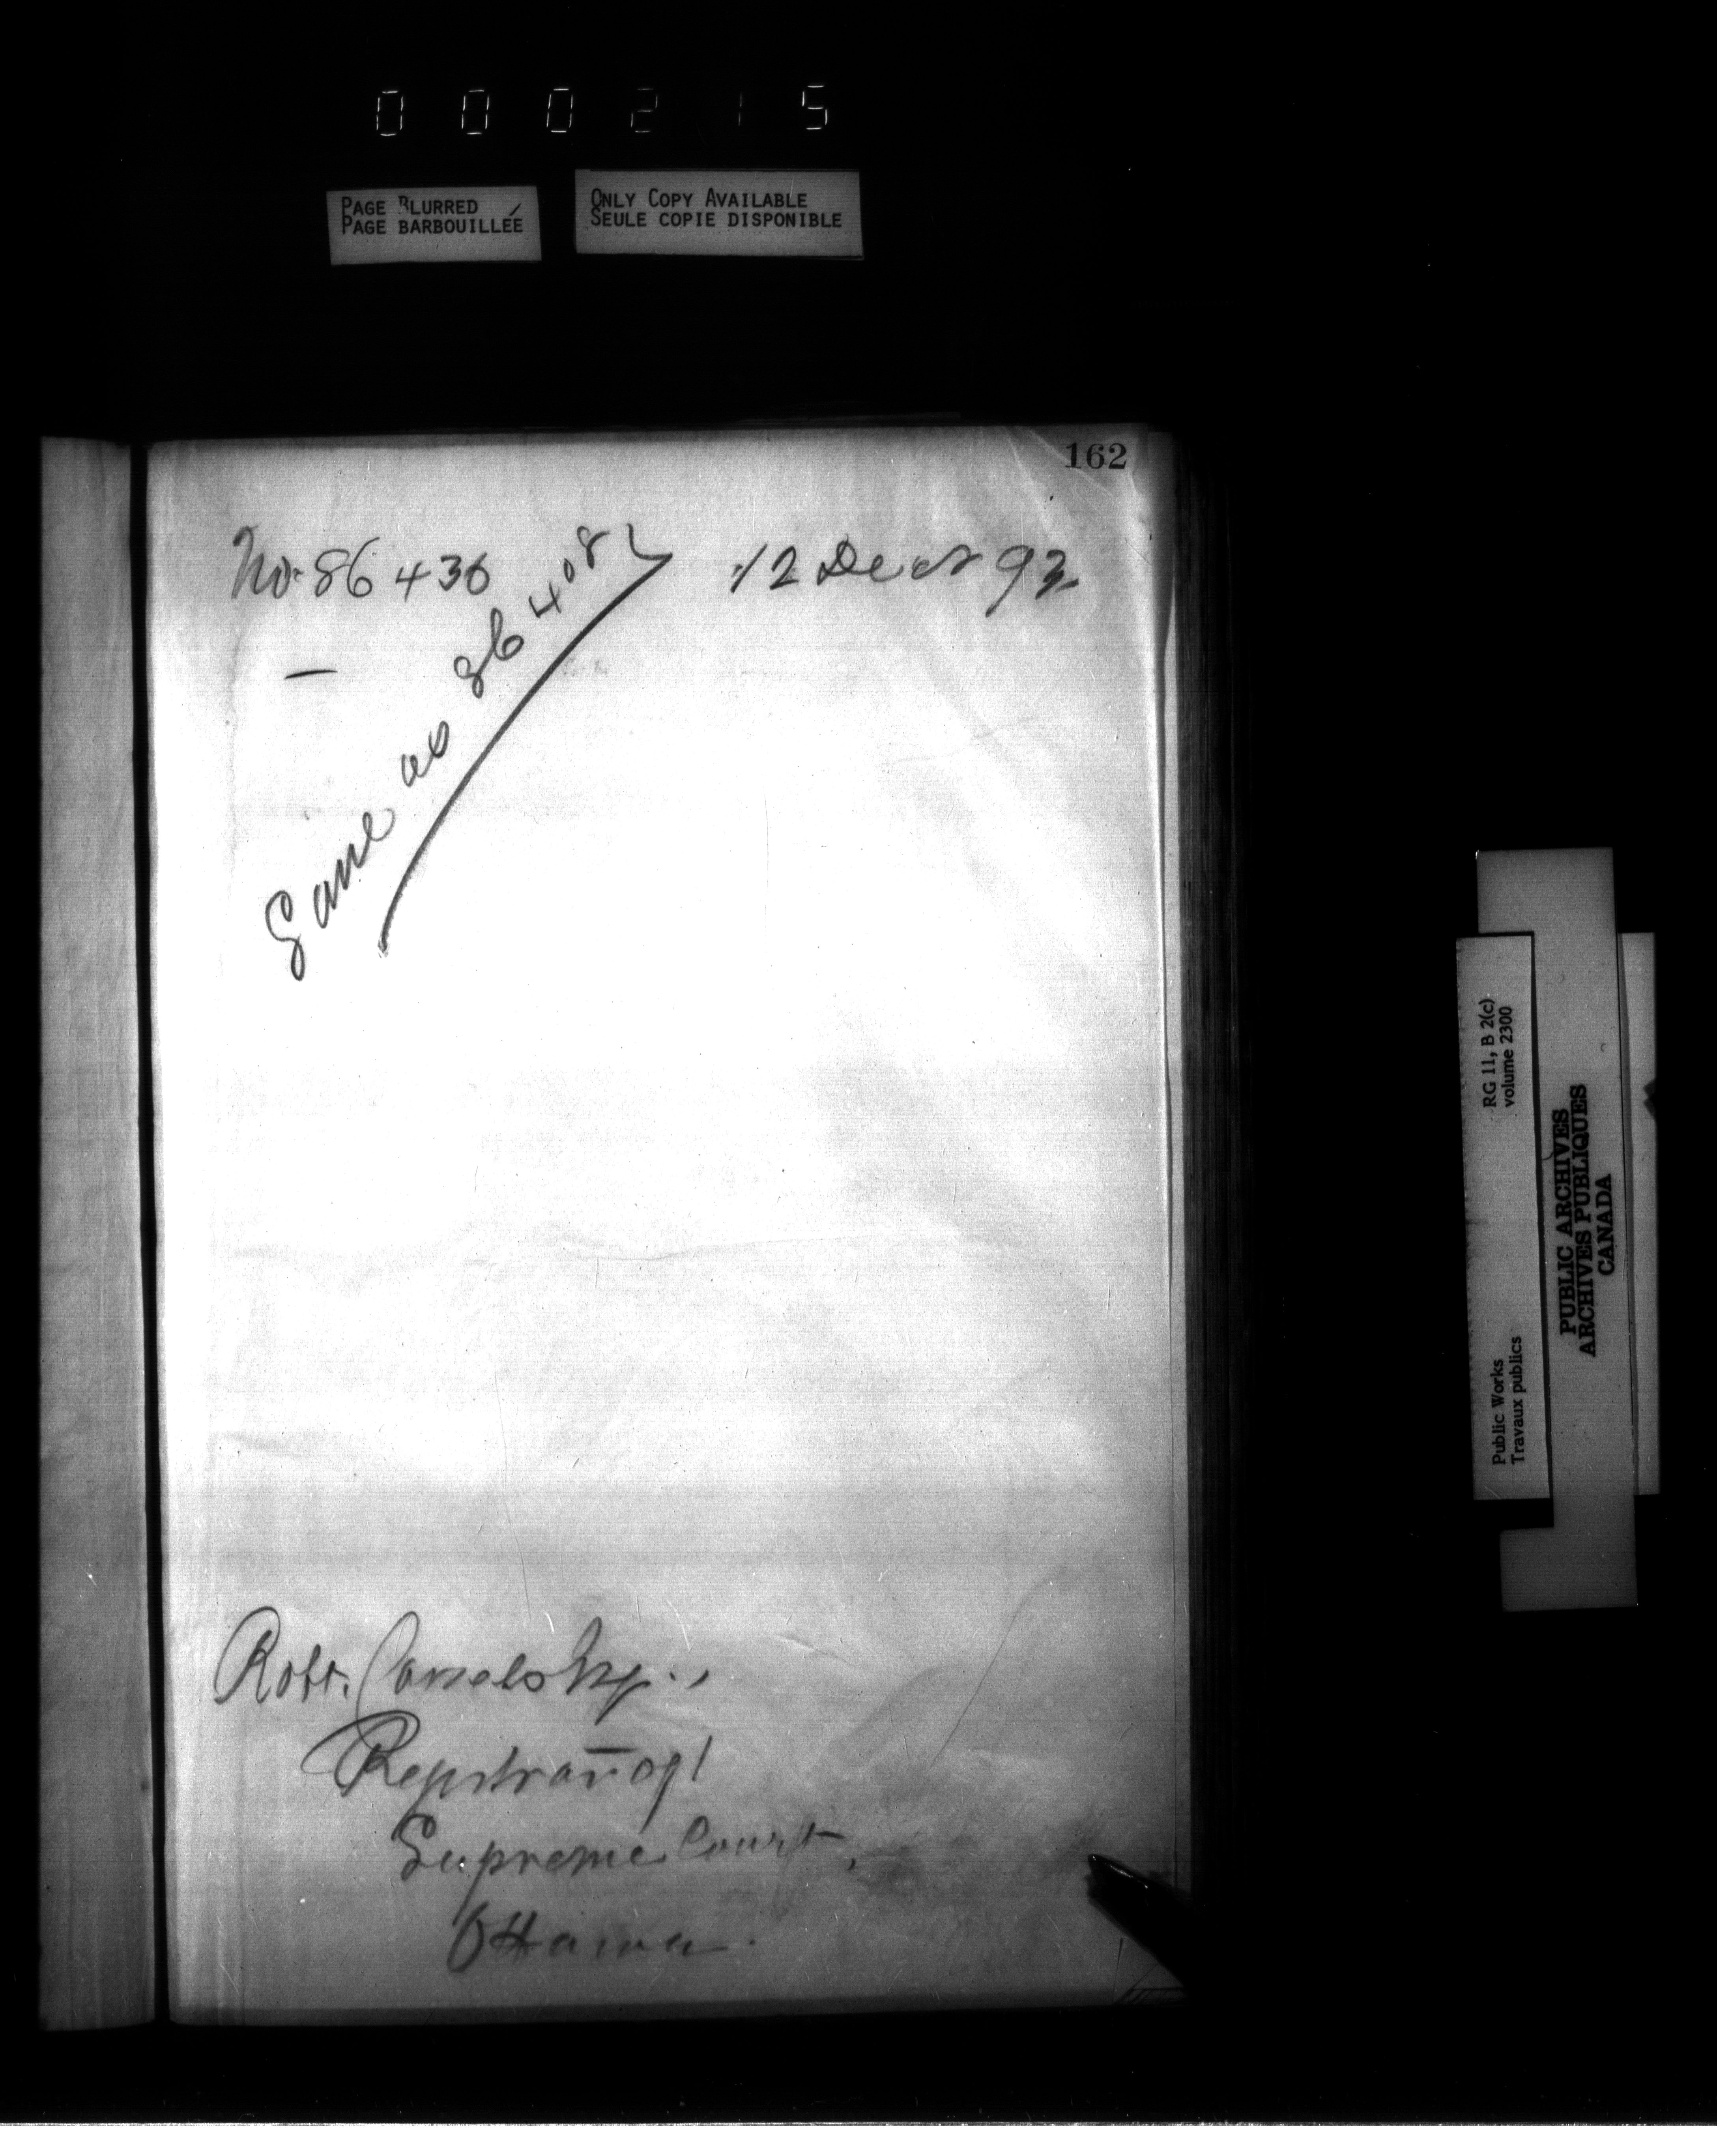 000215
PAGE BLURRED
PAGE BARBOUILLÉE
ONLY COPY AVAILABLE
SEULE COPIE DISPONIBLE
162
No. 86436
12 Decr 93
Same as 86408
Robt. Cassels Esq.,
Registrar of
Supreme Court,
Ottawa.
Public Works
Travaux publics
RG 11, B 2(c)
volume 2300
PUBLIC ARCHIVES
ARCHIVES PUBLIQUES
CANADA